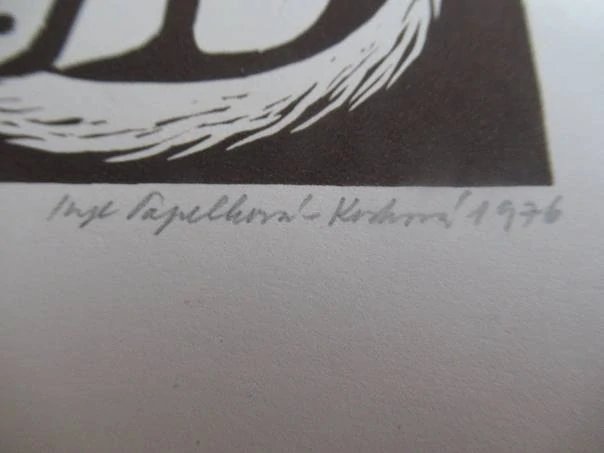 Inge Vapelková-Kochová 1976